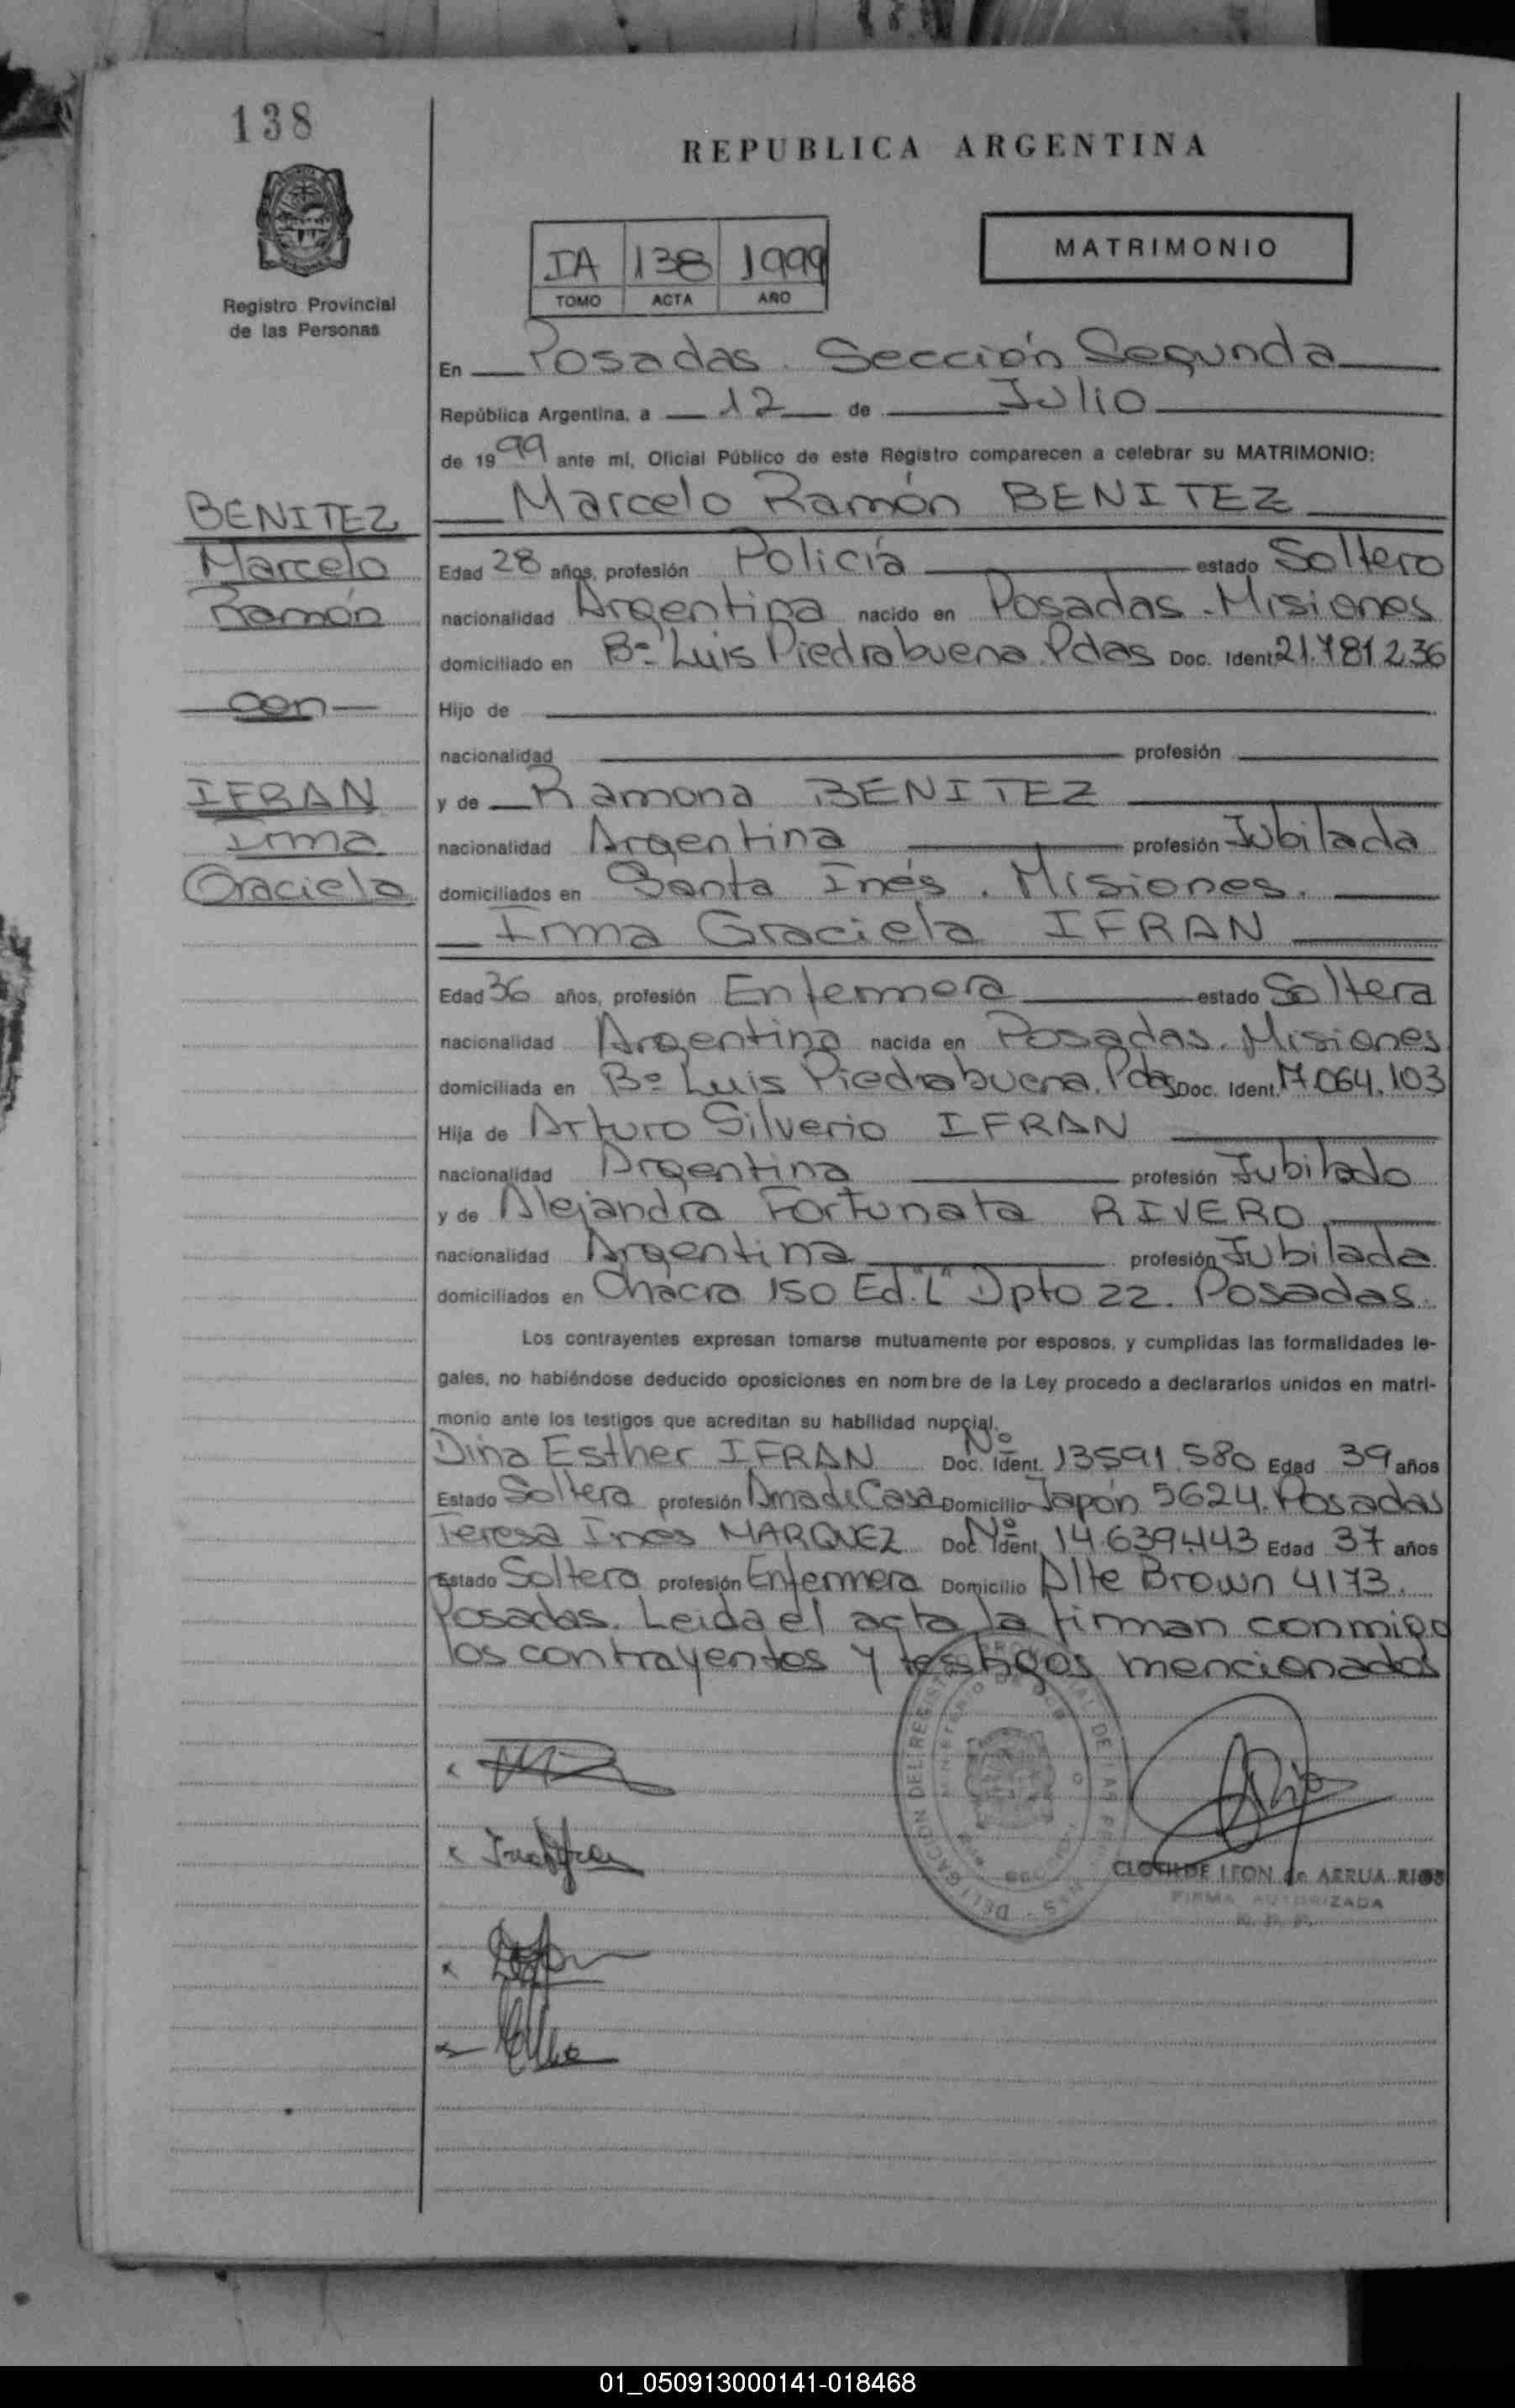 138
REPUBLICA ARGENTINA
Registro Provincial
de las Personas
MATRIMONIO
IA 138 1999
TOMO ACTA AÑO
En Posadas. Sección Segunda
República Argentina, a 12 de Julio
de 1999 ante mí, Oficial Público de este Registro comparecen a celebrar su MATRIMONIO:
BENITEZ
Marcelo
Ramón
con
IFRAN
Irma
Graciela
Marcelo Ramón BENITEZ
Edad 28 años, profesión Policía estado Soltero
nacionalidad Argentina nacido en Posadas - Misiones
domiciliado en Bº Luis Piedrabuena. Pdas Doc. Ident. 21.781.236
Hijo de
nacionalidad profesión
y de Ramona BENITEZ
nacionalidad Argentina profesión Jubilada
domiciliados en Santa Inés. Misiones.
Irma Graciela IFRAN
Edad 36 años, profesión Enfermera estado Soltera
nacionalidad Argentina nacida en Posadas. Misiones
domiciliada en Bº Luis Piedrabuena. Pdas Doc. Ident. 17.064.103
Hija de Arturo Silverio IFRAN
nacionalidad Argentina profesión Jubilado
y de Alejandra Fortunata RIVERO
nacionalidad Argentina profesión Jubilada
domiciliados en Chacra 150 Ed. "L" Dpto 22. Posadas.
Los contrayentes expresan tomarse mutuamente por esposos, y cumplidas las formalidades le-
gales, no habiéndose deducido oposiciones en nombre de la Ley procedo a declararlos unidos en matri-
monio ante los testigos que acreditan su habilidad nupcial.
Dina Esther IFRAN Doc. Ident. Nº 13591.580 Edad 39 años
Estado Soltera profesión Ama de Casa Domicilio Japón 5624. Posadas
Teresa Ines MARQUEZ Doc. Ident. Nº 14.639.443 Edad 37 años
Estado Soltera profesión Enfermera Domicilio Alte Brown 4173.
Posadas. Leida el acta la firman conmigo
los contrayentes y testigos mencionados
CLOTILDE LEON de ARRUA RIOS
FIRMA AUTORIZADA
01_050913000141-018468